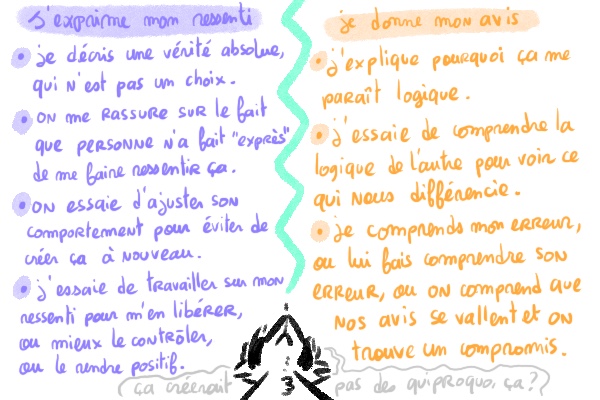 J'exprime mon ressenti
• je décris une vérité absolue,
qui n'est pas un choix.
• on me rassure sur le fait
que personne n'a fait "exprès"
de me faire ressentir ça.
• on essaie d'ajuster son
comportement pour éviter de
créer ça à nouveau.
• j'essaie de travailler sur mon
ressenti pour m'en libérer,
ou mieux le contrôler,
ou le rendre positif.
je donne mon avis
• j'explique pourquoi ça me
paraît logique.
• j'essaie de comprendre la
logique de l'autre pour voir ce
qui nous différencie.
• je comprends mon erreur,
ou lui fais comprendre son
erreur, ou on comprend que
nos avis se vallent et on
trouve un compromis.
ça créerait pas des quiproquo, ça ?